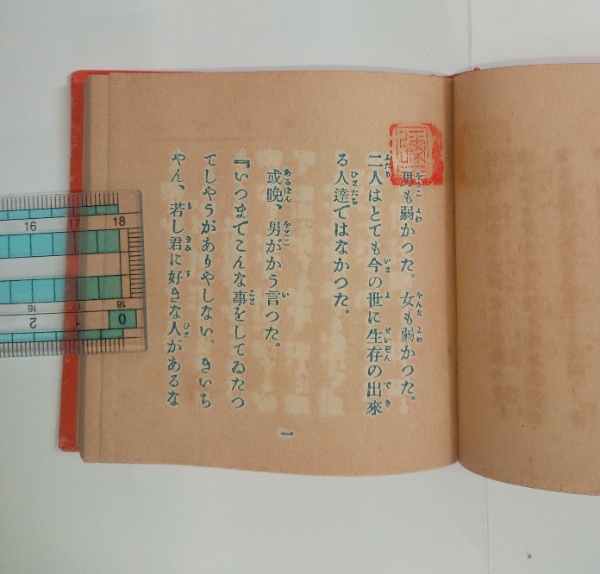 男も弱かつた。女も弱かつた。
二人はとても今の世に生存の出來
る人達ではなかつた。
或晩、男がかう言つた。
『いつまでこんな事をしてゐたつ
てしやうがありやしない。きいち
やん、若し君に好きな人があるな
一
16 17 18
16 17 18
2 1 0